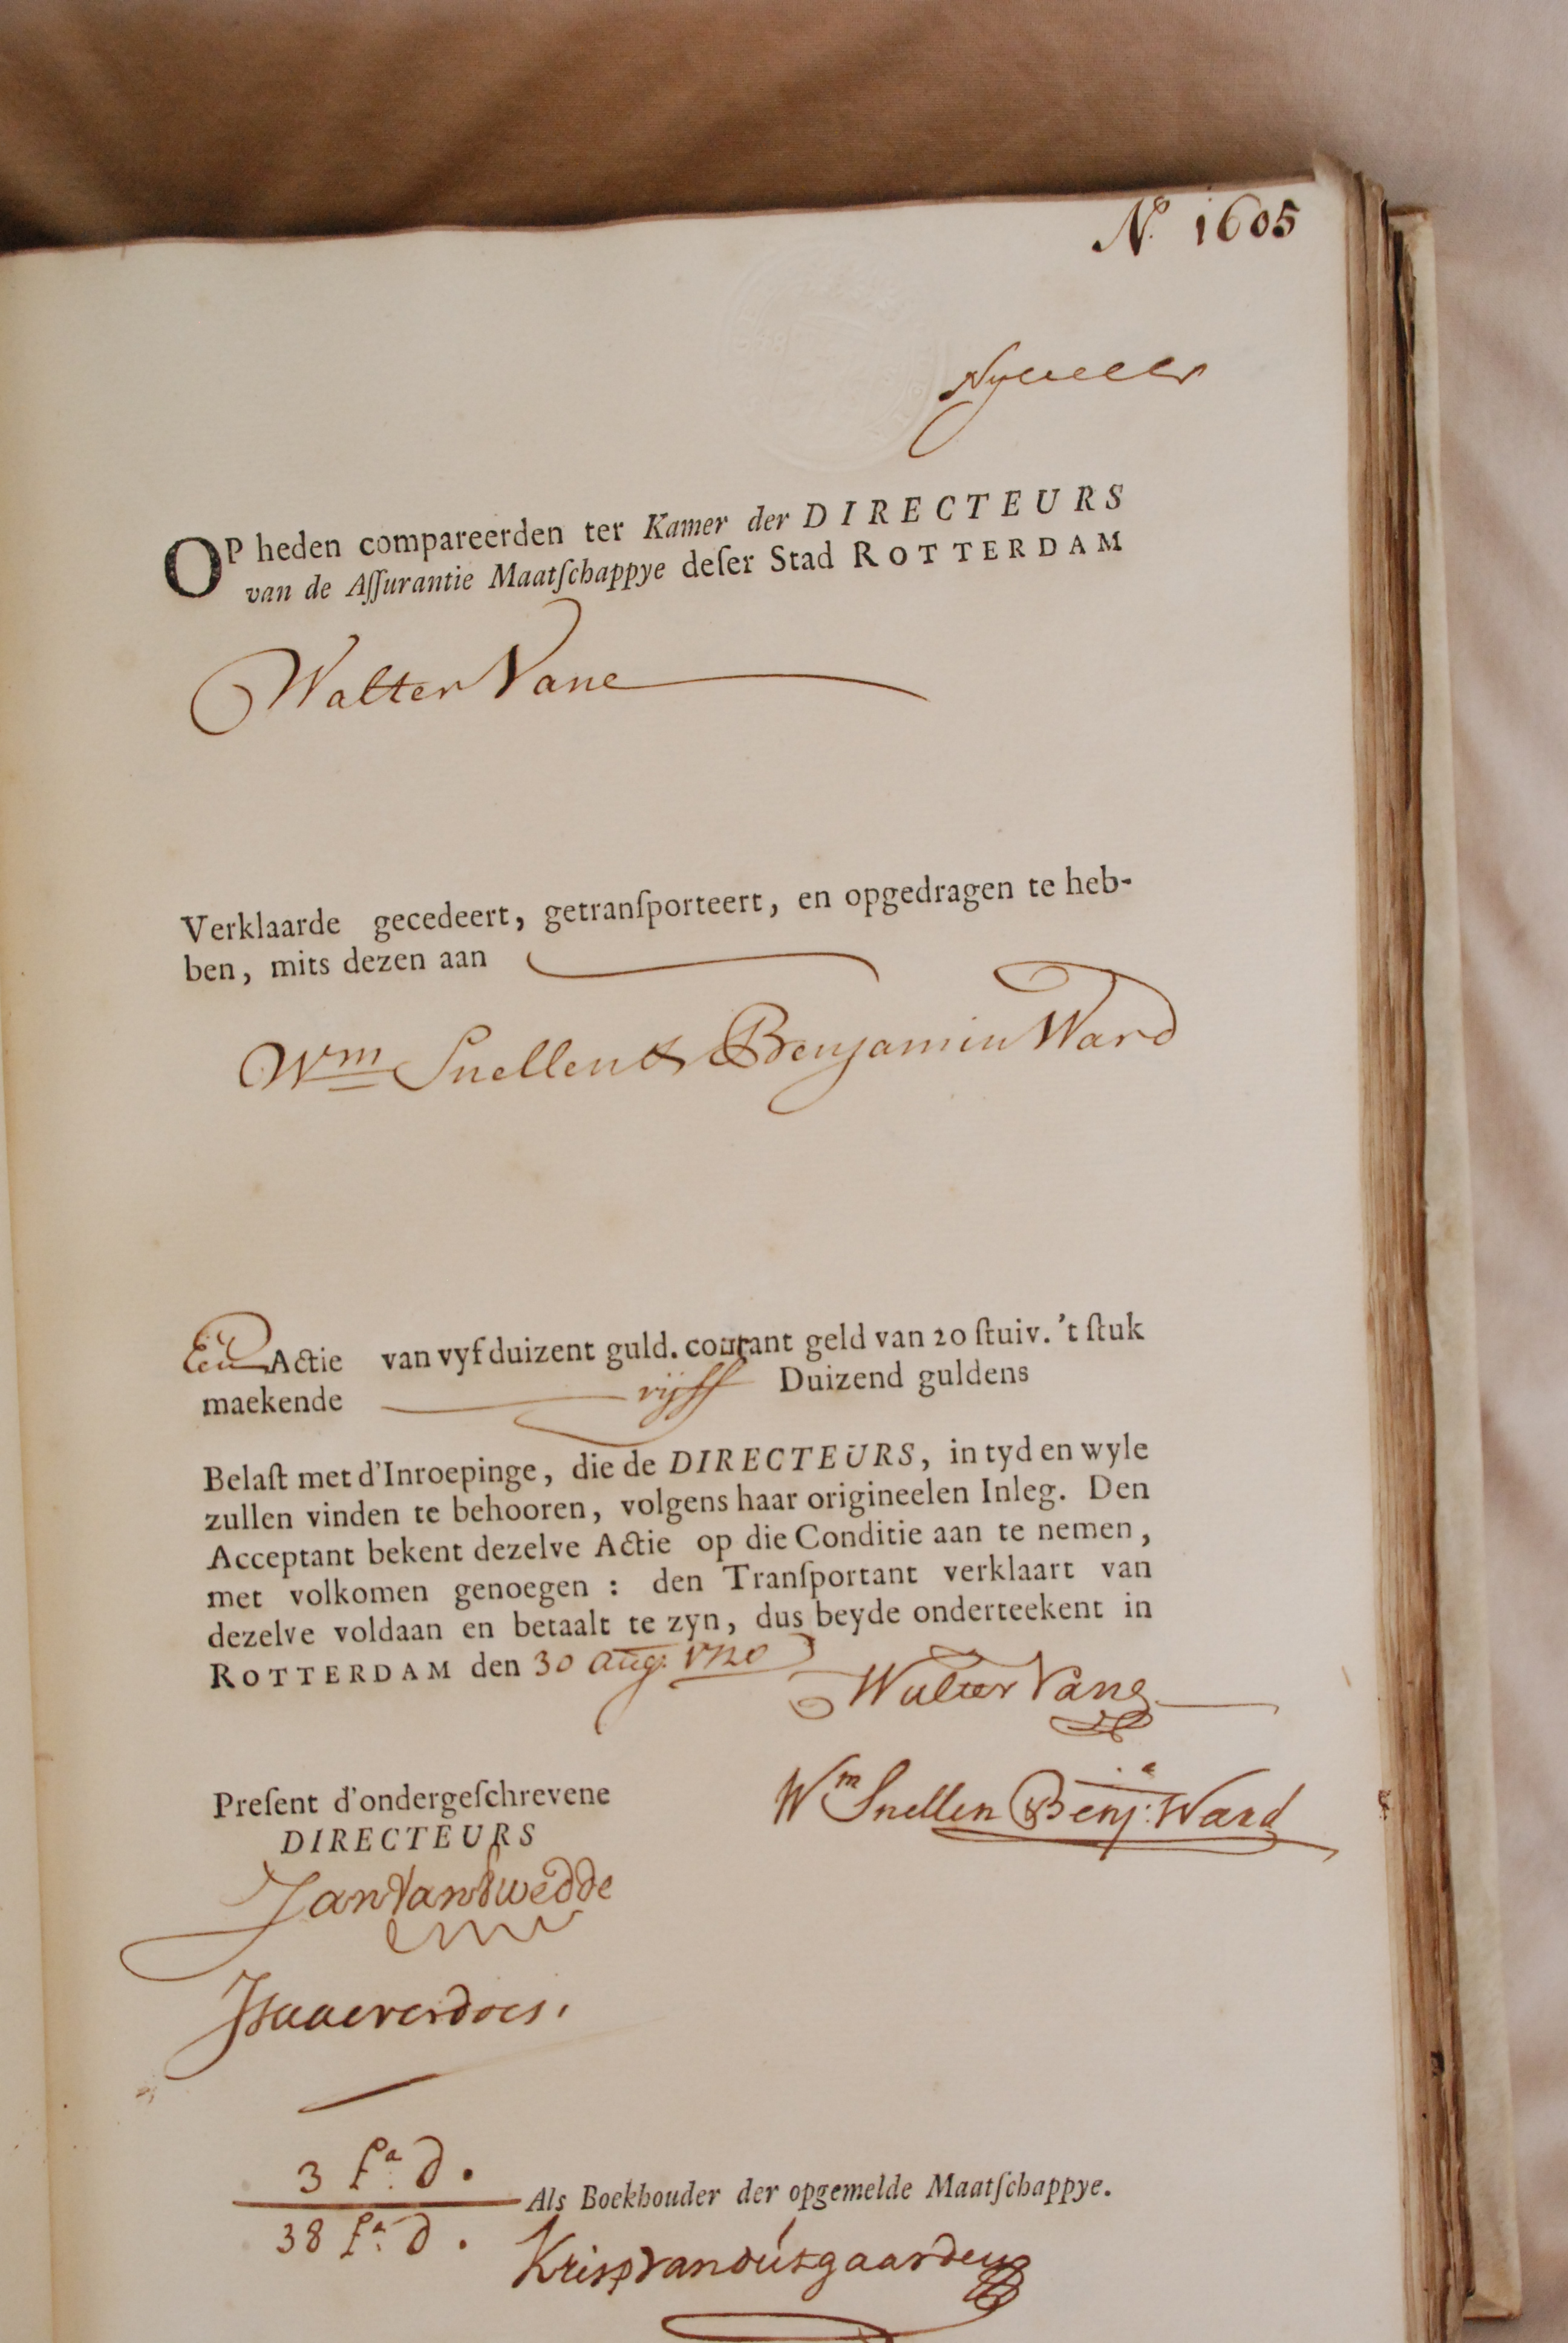 No. 1605
OP heden compareerden ter Kamer der DIRECTEURS
van de Aſſurantie Maatſchappye deſer Stad ROTTERDAM
Walter Vane
Verklaarde gecedeert, getranſporteert, en opgedragen te heb-
ben, mits dezen aan
Wm Snellen & Benjamin Ward
Een Actie van vyf duizent guld. courant geld van 20 ſtuiv. 't ſtuk
maekende vijff Duizend guldens
Belaſt met d'Inroepinge, die de DIRECTEURS, in tyd en wyle
zullen vinden te behooren, volgens haar origineelen Inleg. Den
Acceptant bekent dezelve Actie op die Conditie aan te nemen,
met volkomen genoegen : den Tranſportant verklaart van
dezelve voldaan en betaalt te zyn, dus beyde onderteekent in
ROTTERDAM den 30 Aug: 1720
Walter Vane
Wm Snellen Benj: Ward
Preſent d'ondergeſchrevene
DIRECTEURS
3 fa. d.
Als Boekhouder der opgemelde Maatſchappye.
38 fa. d.